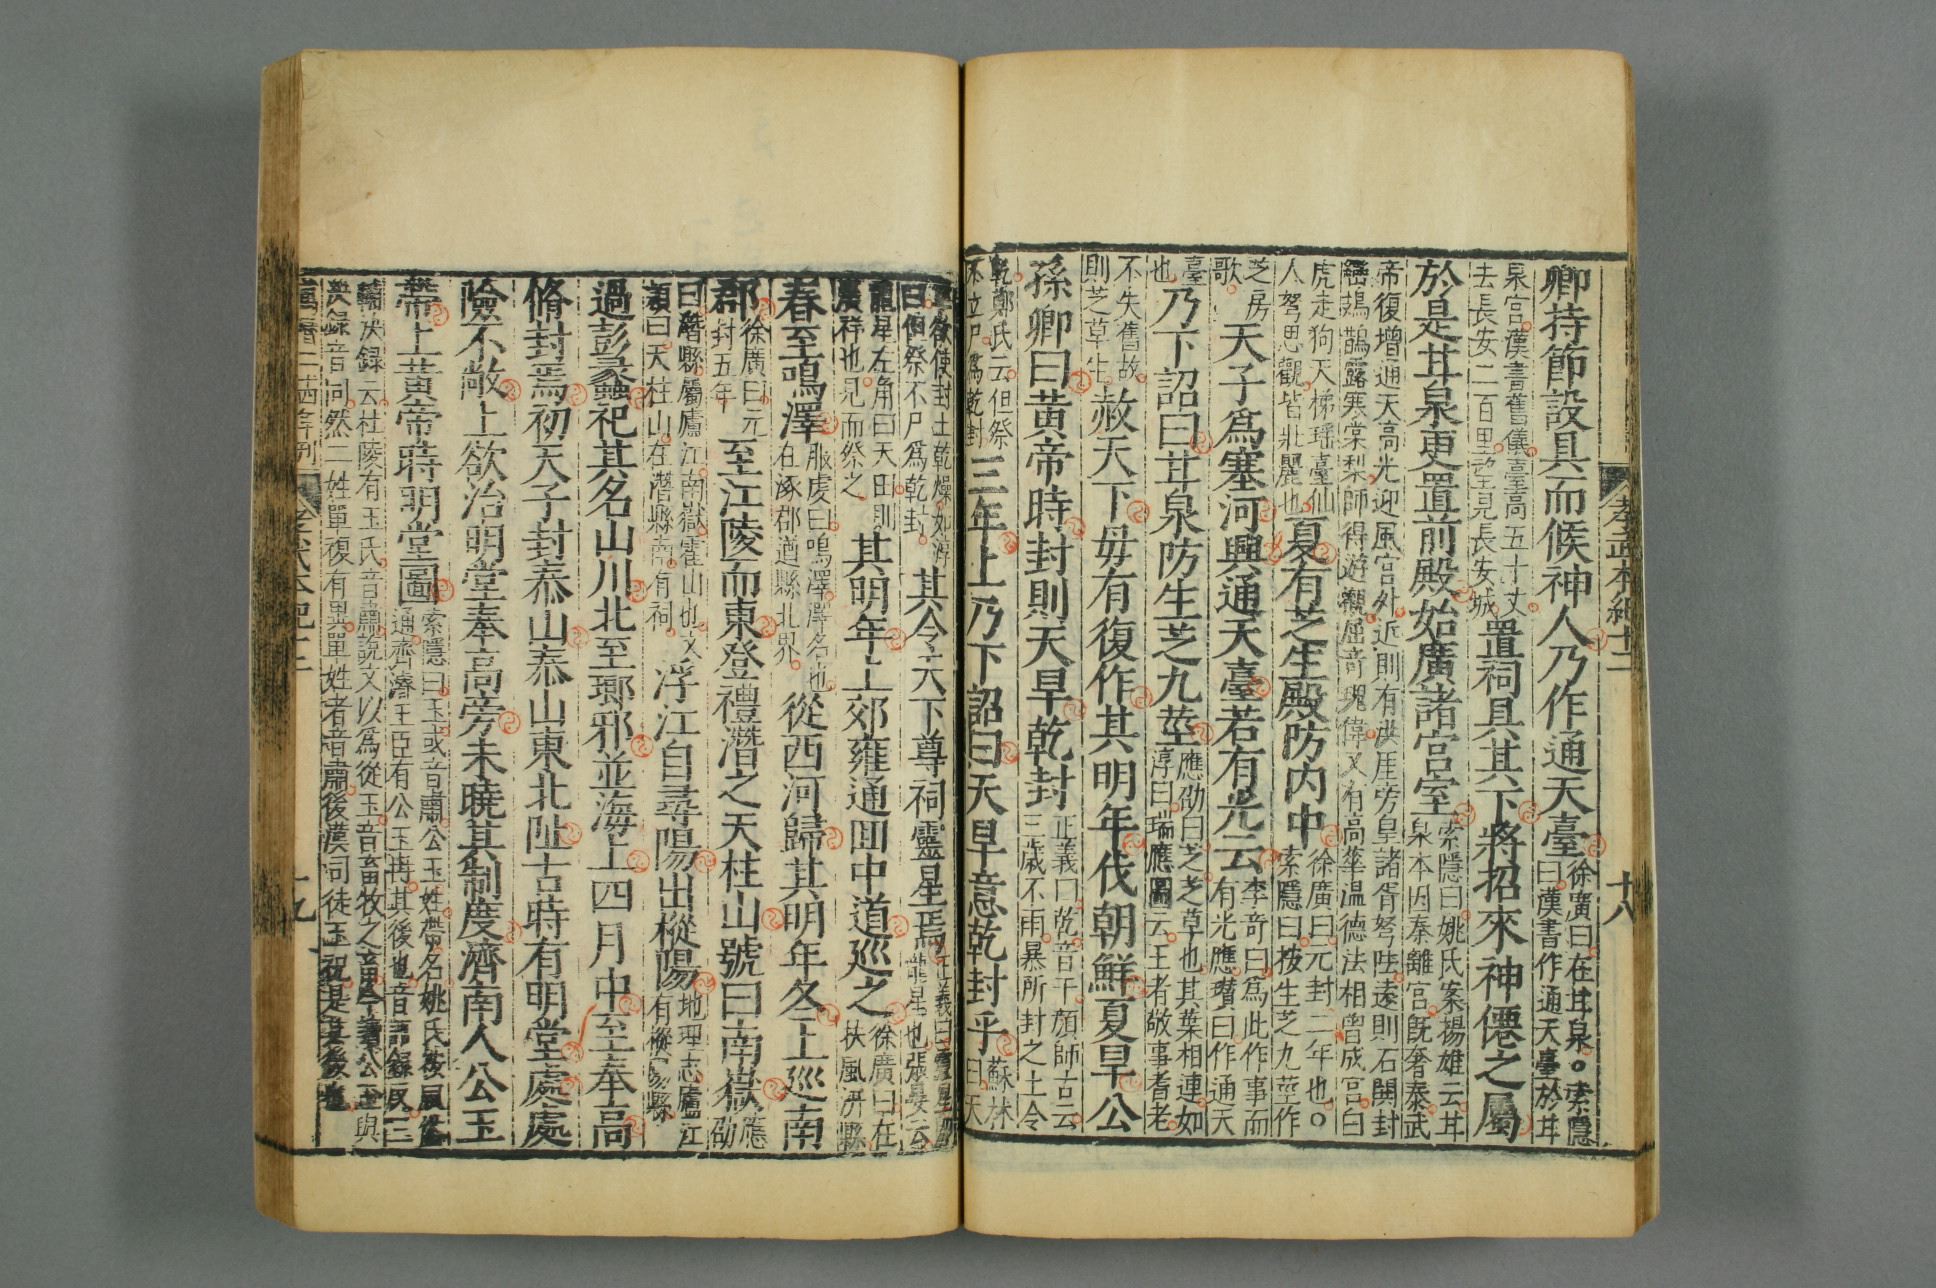 孝武本紀十二 十八
卿持節設具而候神人乃作通天臺徐廣曰在甘泉。索隱曰漢書作通天臺於甘
泉宮漢書舊儀臺高五十丈去長安二百里望見長安城置祠具其下將招來神僊之屬
於是甘泉更置前殿始廣諸宮室索隱曰姚氏案楊雄云甘泉本因秦離宮既奢泰武
帝復增通天高光迎風宮外近則有洪厓旁皇諸胥弩阹遠則石關封巒鳷鵲露寒棠梨師得遊觀屈奇瑰偉又有高華温德法相曾成宮曰
虎走狗天梯瑤臺仙人弩思觀皆壯麗也夏有芝生殿防内中徐廣曰元封二年也。索隱曰按生芝九莖作
芝房歌天子爲塞河興通天臺若有光云李奇曰爲此作事而有光應瓚曰作通天
臺也乃下詔曰甘泉防生芝九莖應劭曰芝芝草也其葉相連如淳曰瑞應圖云王者敬事耆老
不失舊故則芝草生赦天下毋有復作其明年伐朝鮮夏旱公
孫卿曰黃帝時封則天旱乾封正義曰乾音干顏師古云三歲不雨暴所封之土令
乾鄭氏云但祭不立尸爲乾封三年上乃下詔曰天旱意乾封乎蘇林曰天
旱欲使封土乾燥如淳曰但祭不尸爲乾封其令天下尊祠靈星焉正義曰靈星即龍星也張晏云
龍星左角曰天田則農祥也見而祭之其明年上郊雍通回中道巡之徐廣曰在扶風汧縣
春至鳴澤服虔曰鳴澤澤名也在涿郡遒縣北界從西河歸其明年冬上巡南
郡徐廣曰元封五年至江陵而東登禮灊之天柱山號曰南嶽應劭
曰灊縣屬廬江南嶽霍山也文穎曰天柱山在灊縣南有祠浮江自尋陽出樅陽地理志廬江有樅陽縣
過彭蠡祀其名山川北至琅邪並海上四月中至奉高
脩封焉初天子封泰山泰山東北阯古時有明堂處處
險不敞上欲治明堂奉高旁未曉其制度濟南人公玉
帶上黃帝時明堂圖索隱曰玉或音肅公玉姓帶名姚氏案風俗通齊濬王臣有公玉冉其後也音語錄反三
輔決錄云杜陵有玉氏音肅說文以爲從玉音畜牧之畜今讀公玉與決錄音同然二姓單複有異單姓者音肅後漢司徒玉況是其後也
萬曆二十四年刊 孝武本紀十二 十九